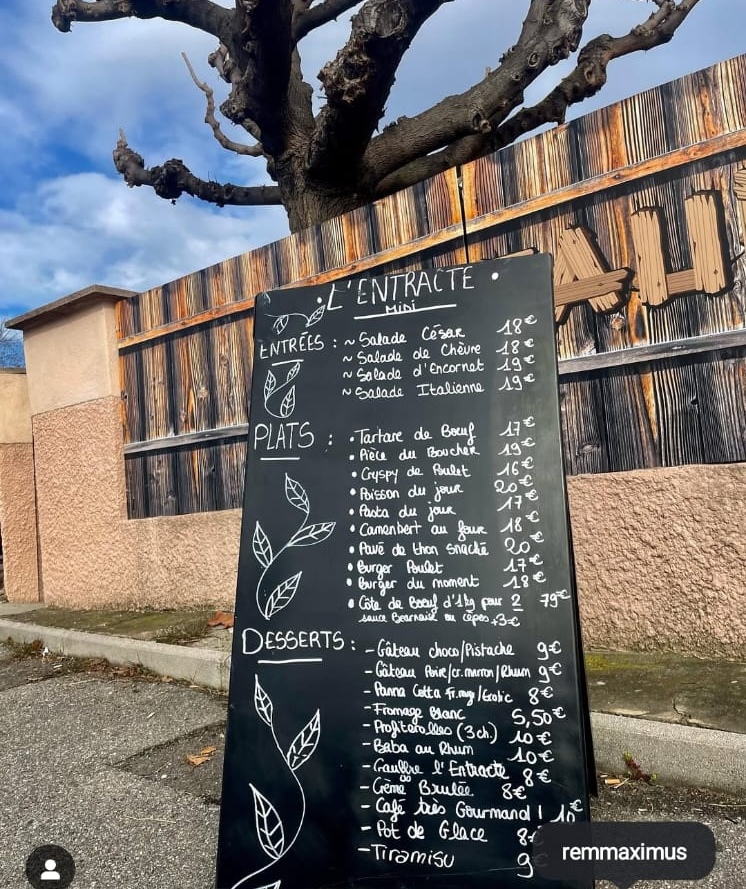 L'ENTRACTE
MIDI
ENTRÉES :
~ Salade César 18€
~ Salade de Chèvre 18€
~ Salade d'Encornet 19€
~ Salade Italienne 19€
PLATS :
• Tartare de Bœuf 17€
• Pièce du Boucher 19€
• Cryspy de Poulet 16€
• Poisson du jour 20€
• Pasta du jour 17€
• Camenbert au four 18€
• Pavé de thon snacké 20€
• Burger Poulet 17€
• Burger du moment 18€
• Côte de Bœuf d'1kg pour 2 79€
sauce Bearnaise ou cèpes +3€
DESSERTS :
- Gâteau choco/Pistache 9€
- Gâteau Poire/cr.marron/Rhum 9€
- Panna Cotta Fr.rouge/Exotic 8€
- Fromage Blanc 5,50€
- Profiterolles (3 ch.) 10€
- Baba au Rhum 10€
- Gauffre l'Entracte 8€
- Crème Brulée 8€
- Café très Gourmand ! 10€
- Pot de Glace 8€
- Tiramisu 9€
AU
remmaximus